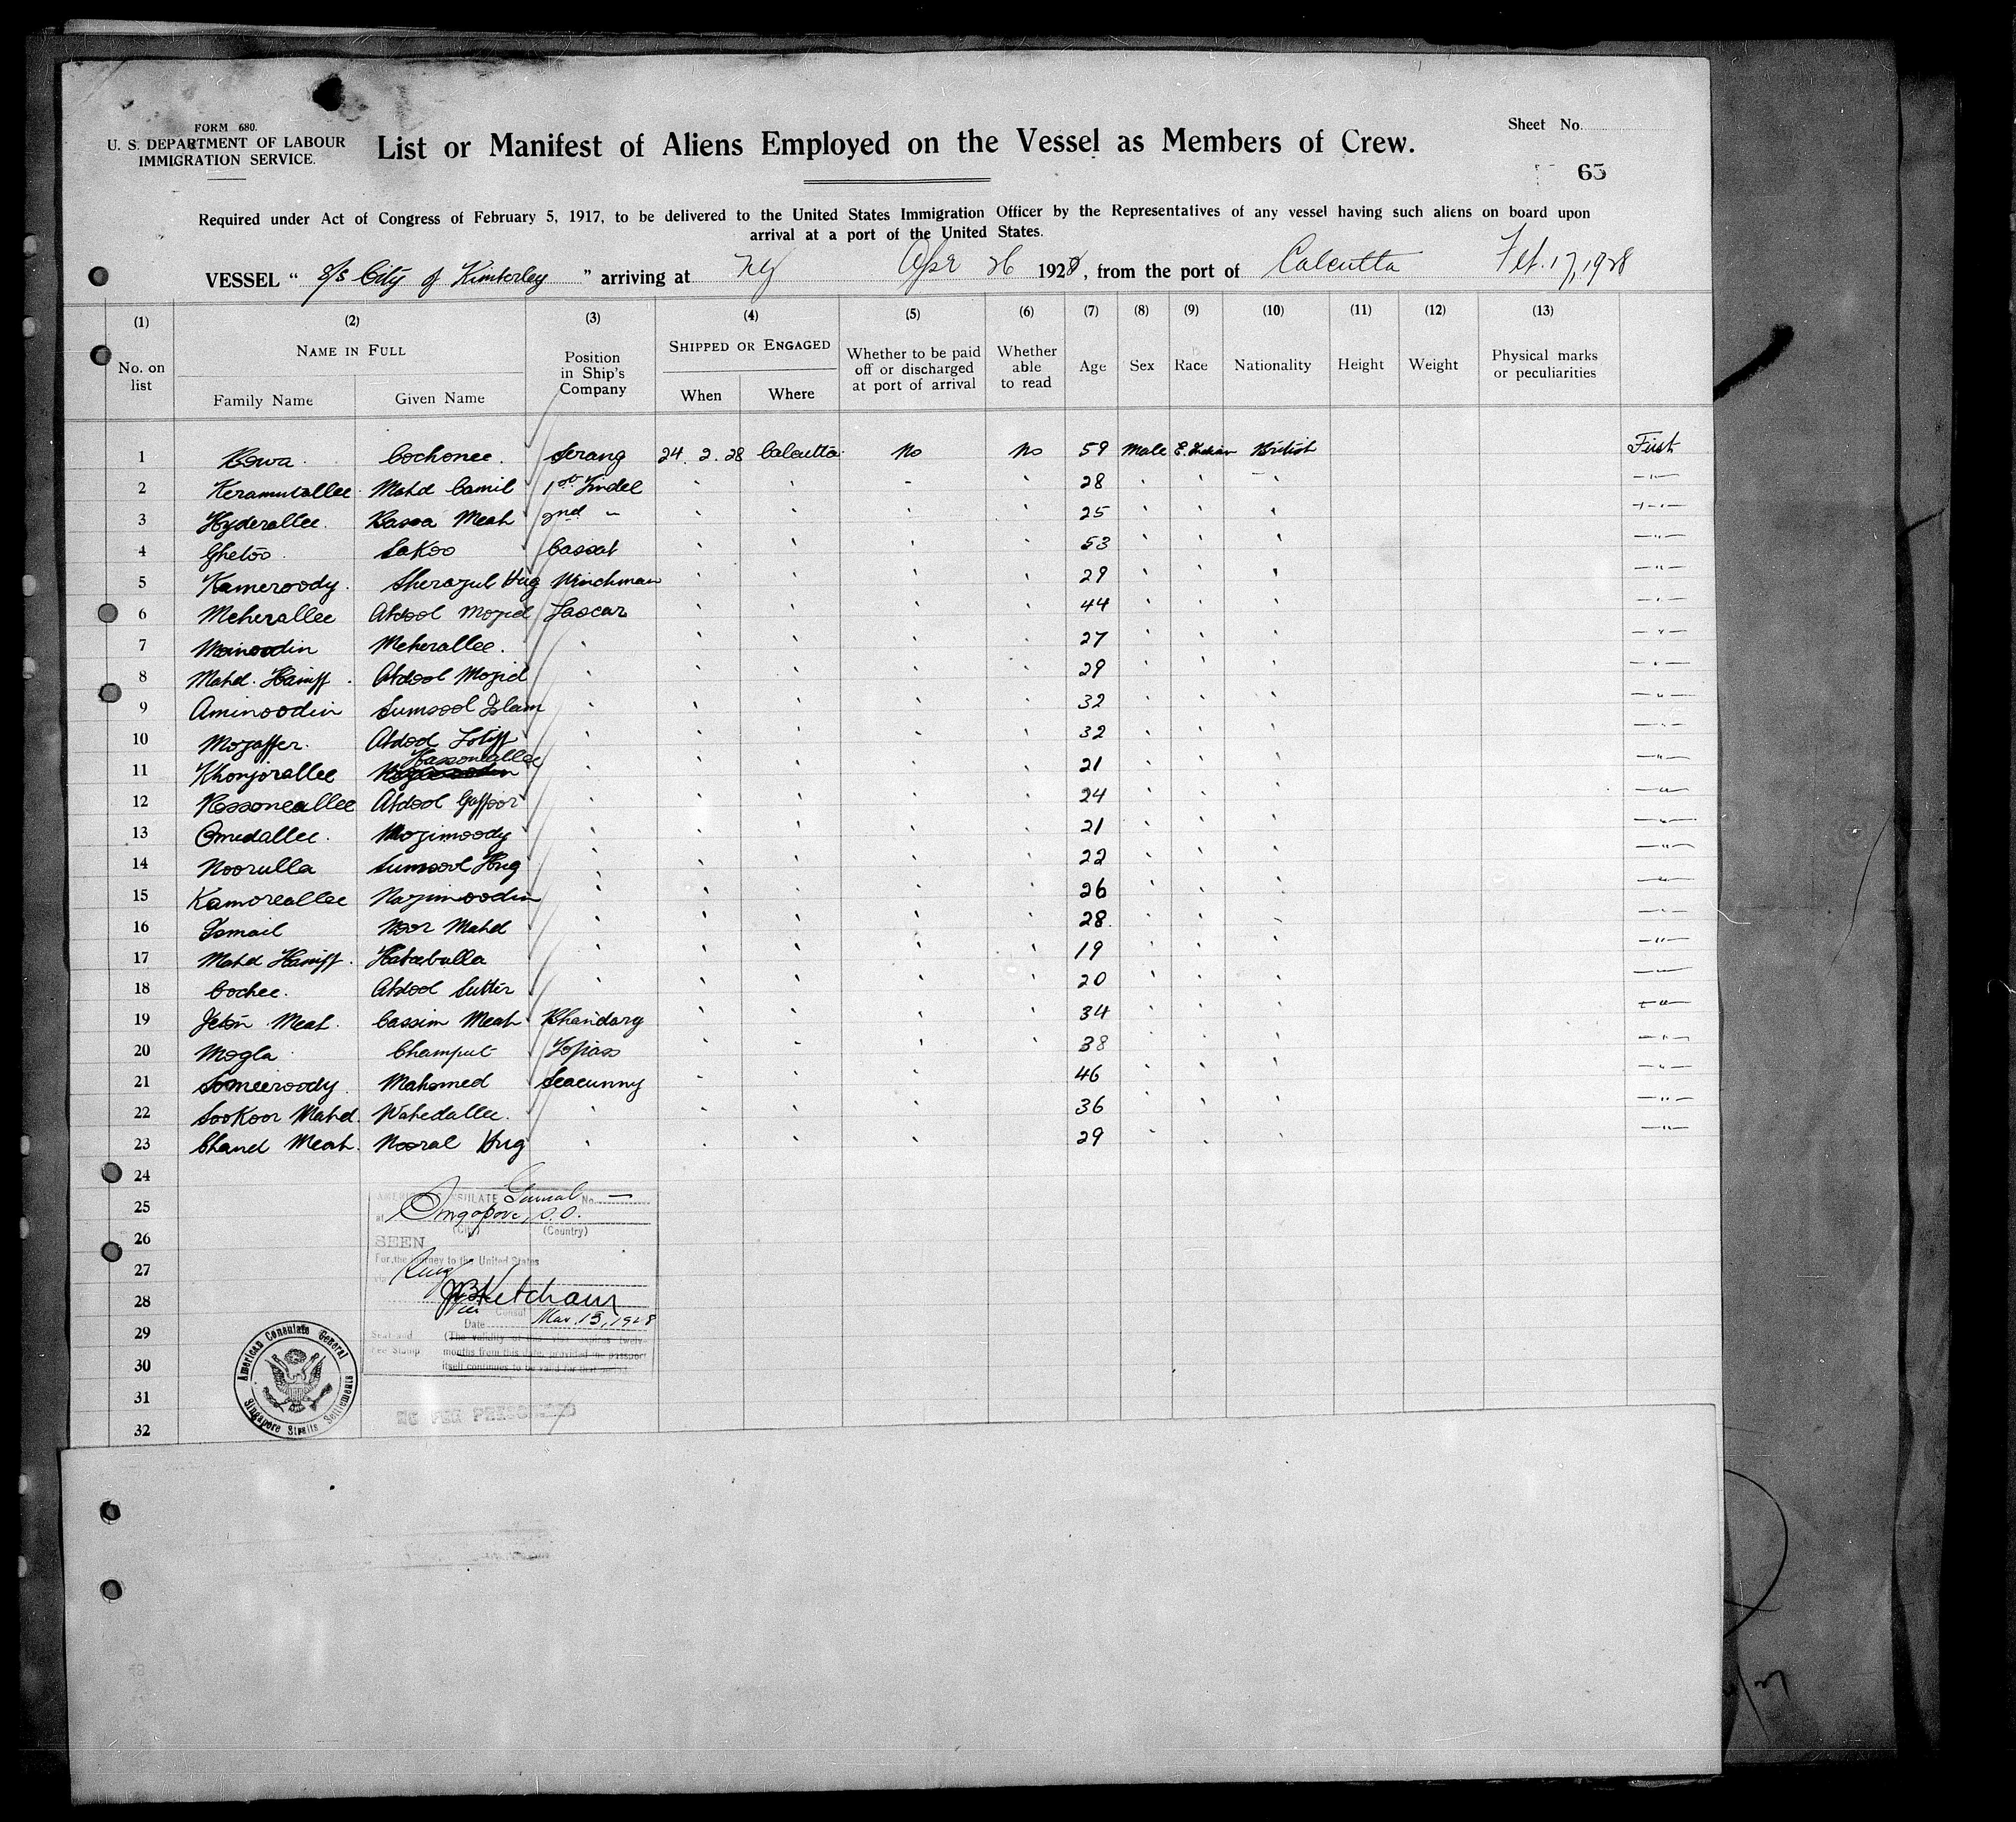 FORM 680.
U. S. DEPARTMENT OF LABOUR
IMMIGRATION SERVICE.
List or Manifest of Aliens Employed on the Vessel as Members of Crew.
Sheet No.
65
Required under Act of Congress of February 5, 1917, to be delivered to the United States Immigration Officer by the Representatives of any vessel having such aliens on board upon
arrival at a port of the United States.
VESSEL " S/S City of Kimberley " arriving at NY Apr 26 1928, from the port of Calcutta Feb. 17, 1928
(1) (2) (3) (4) (5) (6) (7) (8) (9) (10) (11) (12) (13)
No. on list
NAME IN FULL
Family Name Given Name
Position in Ship's Company
SHIPPED OR ENGAGED
When Where
Whether to be paid off or discharged at port of arrival
Whether able to read
Age Sex Race Nationality Height Weight
Physical marks or peculiarities
1 Bowa. Cochonee. Serang 24. 2. 28 Calcutta No No 59 Male E. Indian British First
2 Keramutallee Mahd Camil 1st Tindel " " " " 28 " " " "
3 Hyderallee. Bassa Meah 2nd " " " " " 25 " " " "
4 Ghetoo Sakoo Cassab " " " " 53 " " " "
5 Kameroody. Sherazul Hug Winchman " " " " 29 " " " "
6 Meherallee Abdool Mozid Lascar " " " " 44 " " " "
7 Moinoodin Meherallee. " " " " " 27 " " " "
8 Mahd. Haniff. Abdool Mozid " " " " " 29 " " " "
9 Aminoodin Sumsool Islam " " " " " 32 " " " "
10 Mozaffer. Abdool Lotiff " " " " " 32 " " " "
11 Khonjorallee Hassoneallee " " " " " 21 " " " "
12 Hossoneallee Abdool Gaffoor " " " " " 24 " " " "
13 Omedallee. Mozimoody " " " " " 21 " " " "
14 Noorulla Sumsool Hug " " " " " 22 " " " "
15 Kamoreallee Nazimoodin " " " " " 26 " " " "
16 Ismail Noor Mahd " " " " " 28 " " " "
17 Mahd Haniff. Habebulla " " " " " 19 " " " "
18 Cochee. Abdool Sutter " " " " " 20 " " " "
19 Jeton Meah. Cassim Meah Bhandary " " " " 34 " " " "
20 Mogla Champut Topass " " " " 38 " " " "
21 Someeroody. Mahomed Seacunny " " " 46 " " " "
22 Sookoor Mahd. Wahedallee. " " " " 36 " " " "
23 Chand Meah. Nooral Hug " " " " 29 " " " "
24
25
26
27
28
29
30
31
32
AMERICAN CONSULATE General No. —
at Singapore, S.S.
(City) (Country)
SEEN
For the journey to the United States
JB Ketcham
Vice Consul
Date Mar. 15, 1928
Seal and Fee Stamp
(The validity of this visa expires twelve
months from this date, provided the passport
itself continues to be valid for that period
American Consulate General
Singapore Straits Settlements
NO FEE PRESCRIBED